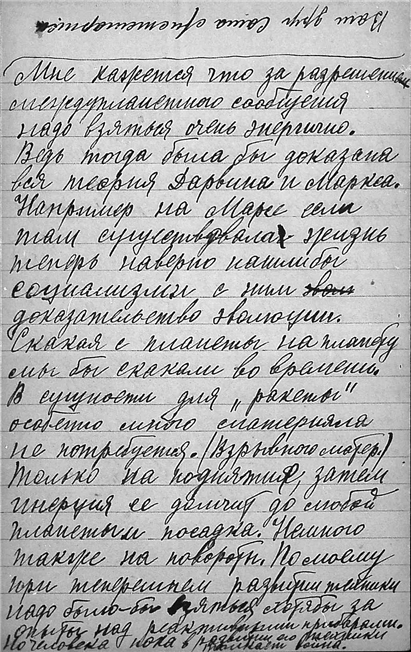 Ваш друг Саша
Мне кажется что за разрешением
междупланетного сообщения
надо взяться очень энергично.
Ведь тогда была бы доказана
вся теория Дарвина и Маркса.
Например на Марсе если
там существовала жизнь
теперь наверно нашли бы
социализм и с ним
доказательство эволюции.
Скакая с планеты на планету
мы бы скакали во времени.
В сущности для „ракеты"
особенно много материяла
не потребуется. (Взрывного матер.)
Только на поднятие, затем
инерция ее домчит до любой
планеты и посадка. Немного
также на повороты. По моему
при теперешнем развитии техники
надо было-бы взяться хотябы за
опыты над реактивными приборами.
Но человека пока в развитии его техники
война.